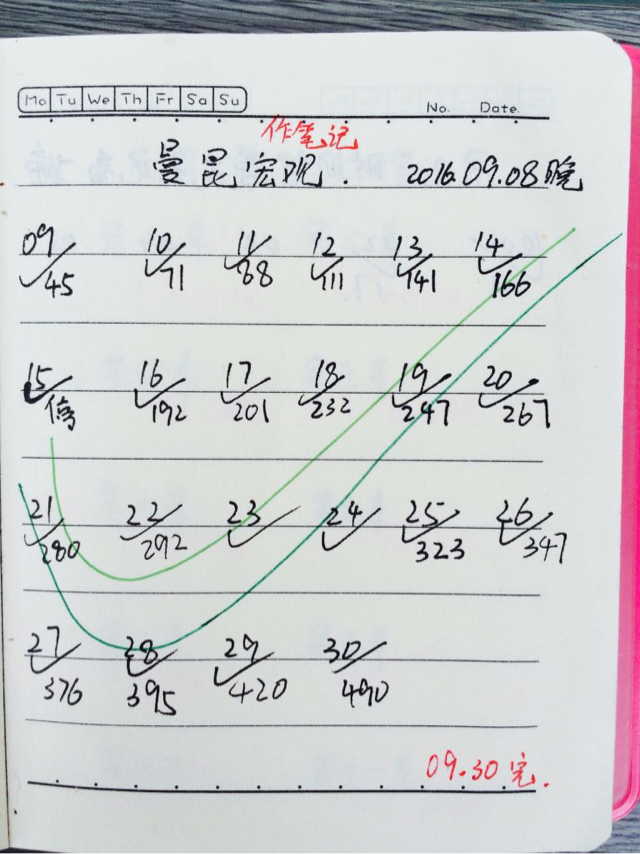 Mo Tu We Th Fr Sa Su
No. Date.
作笔记
曼昆宏观. 2016.09.08晚
09 10 11 12 13 14
45 71 88 111 141 166
15 16 17 18 19 20
停 192 201 232 247 267
21 22 23 24 25 26
280 292 323 347
27 28 29 30
376 395 420 490
09.30完.